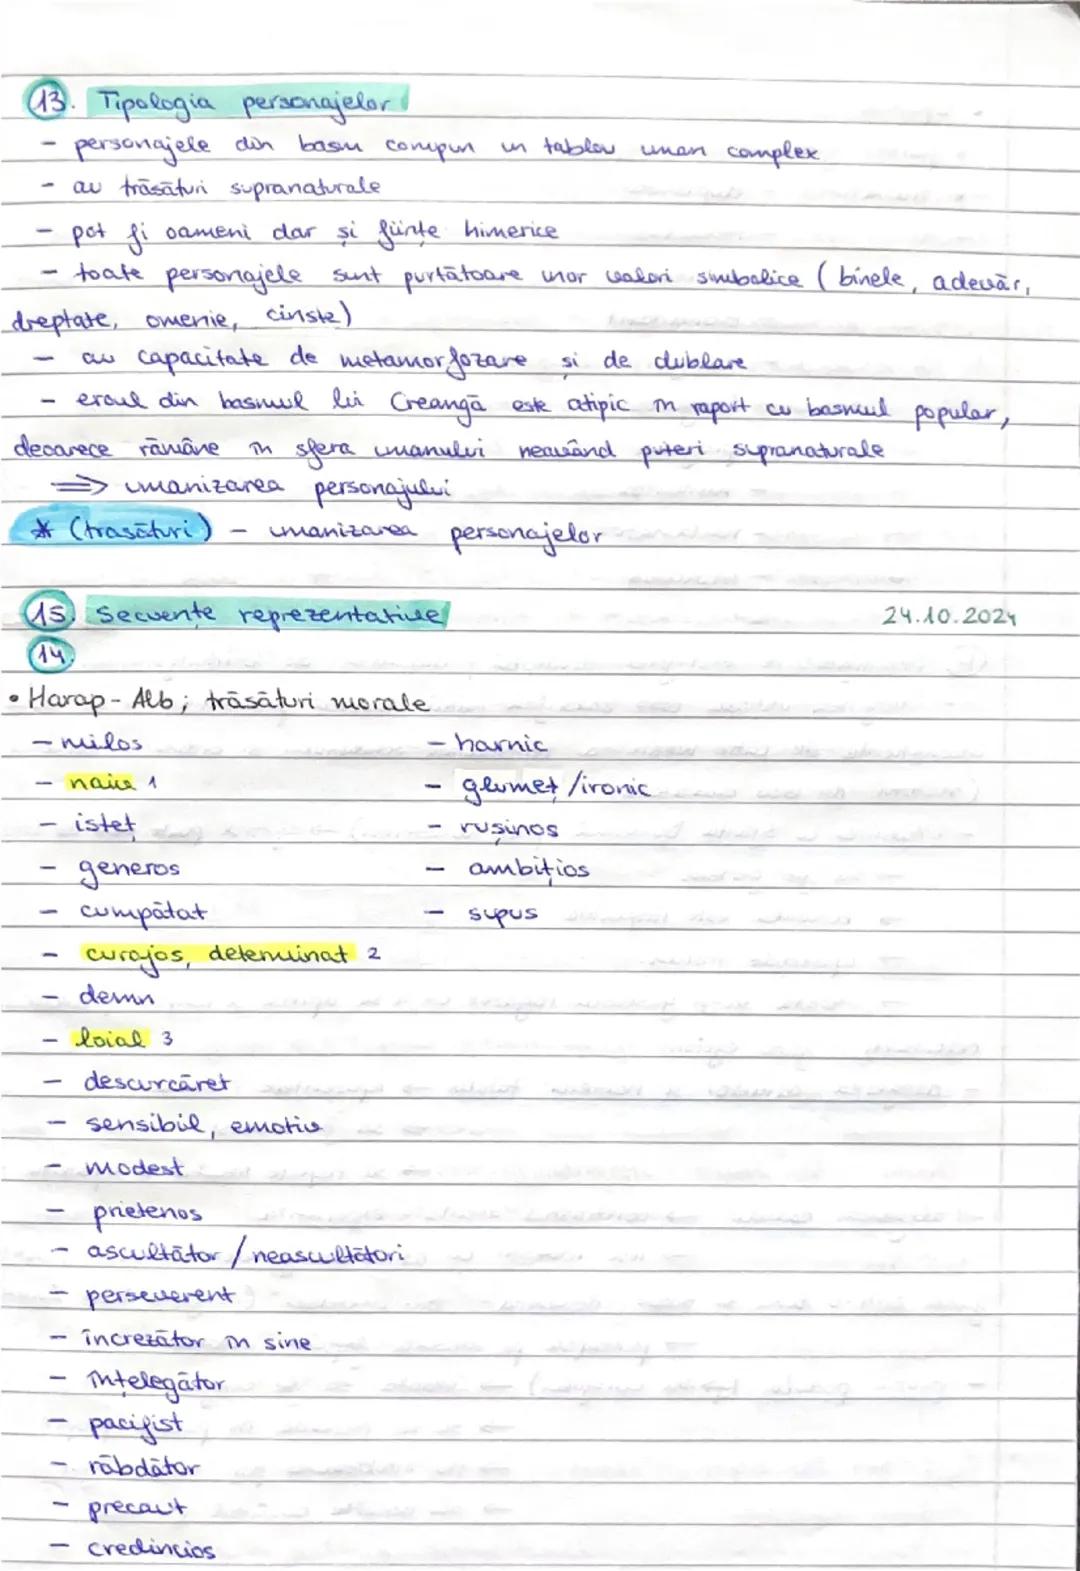 13. Tipologia personajelor
- personajele din basm compun un tablou uman complex
- au trăsături supranaturale
- pot fi oameni dar și ființe himerice
- toate personajele sunt purtătoare unor valori simbolice (binele, adevăr,
dreptate, omenie, cinste)
- au capacitate de metamorfozare și de dublare
- eroul din basmul lui Creangă este atipic în raport cu basmul popular,
deoarece rămâne în sfera umanului neavând puteri supranaturale
=> umanizarea personajului
* (trasături) - umanizarea personajelor
15. Secvențe reprezentative 24.10.2024
14.
• Harap-Alb; trăsături morale
- milos - harnic
- naiv 1 - glumeț/ironic
- isteț - rușinos
- generos - ambițios
- cumpătat - supus
- curajos, determinat 2
- demn
- loial 3
- descurcăreț
- sensibil, emotiv
- modest
- prietenos
- ascultător / neascultători
- perseverent
- încrezător în sine
- înțelegător
- pacifist
- răbdător
- precaut
- credincios